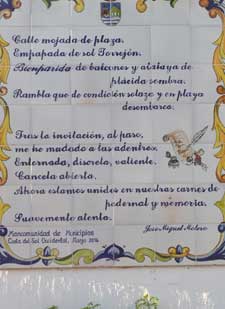 Calle mojada de plaza.
Empapada de sol Torrejón.
Bienparida de balcones y atalaya de
plácida sombra.
Rambla que de condición solaze y en playa
desembarco.
Tras la invitación, al paso,
me he mudado a las adentros.
Enternada, discreta, valiente.
Cancela abierta.
Ahora estamos unidos en nuestras carnes de
pedernal y memoria.
Suavemente alenta.
Jose Miguel Molero
Mancomunidad de Municipios
Costa del Sol Occidental, Mayo 2016